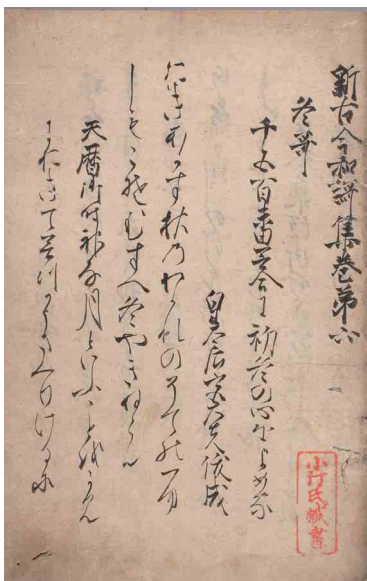 新古今和謌集巻第六
冬哥
千五百番哥合に初冬の心をよめる
皇太后宮大夫俊成
おきあかす秋のわかれのそての露
しもこそむすへ冬やきぬらん
天暦御時神な月といふことをかみ
におきて哥つかうまつりけるに
小汀氏蔵書